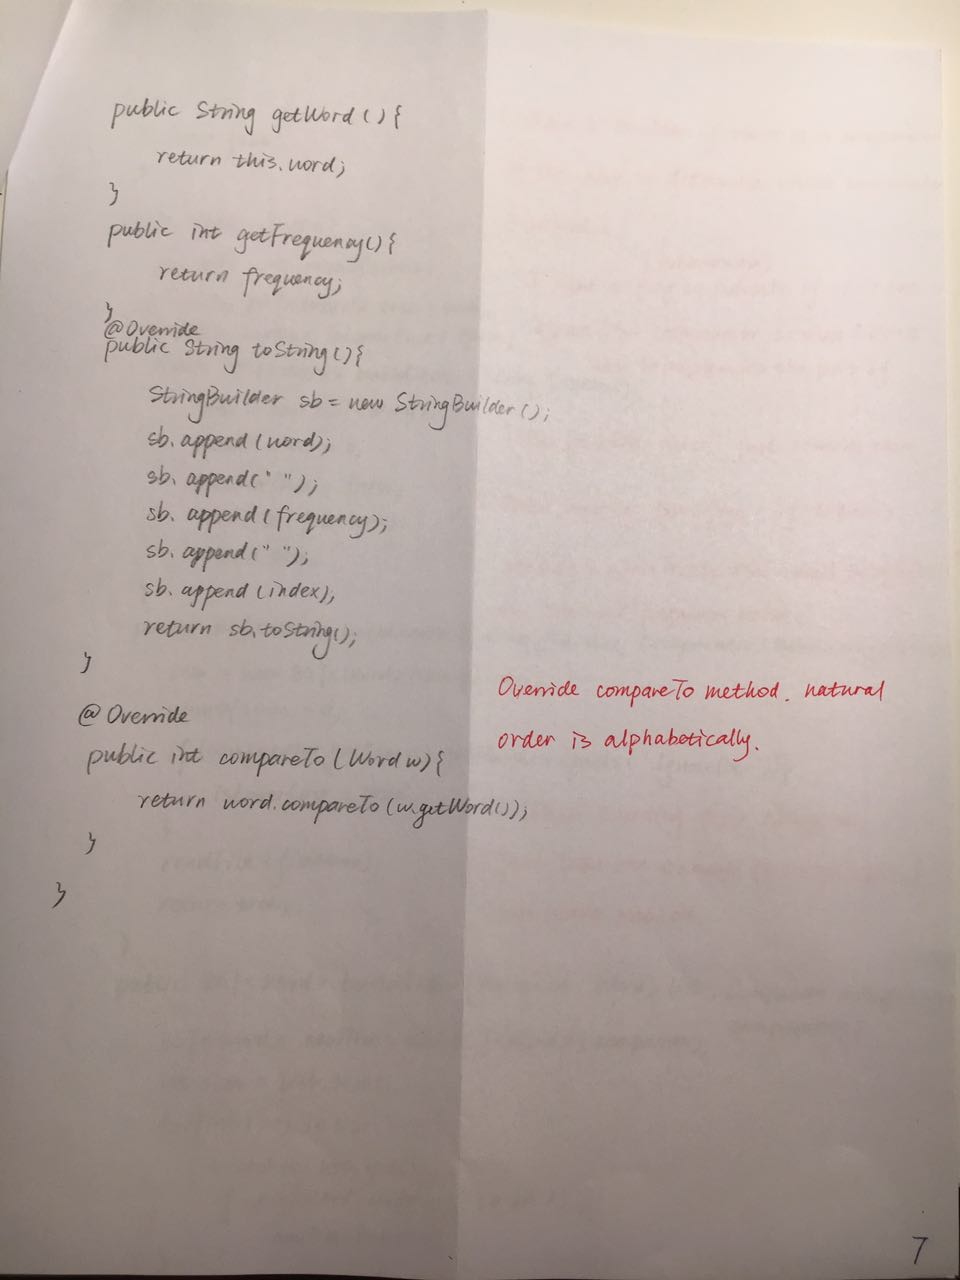 public String getWord(){
return this.word;
}
public int getFrequency(){
return frequency;
}
@Override
public String toString(){
StringBuilder sb = new StringBuilder();
sb.append(word);
sb.append(" ");
sb.append(frequency);
sb.append(" ");
sb.append(index),
return sb.toString();
}
@Override
public int compareTo(Word w){
return word.compareTo(w.getWord());
}
}
Override compareTo method. natural
order is alphabetically.
7